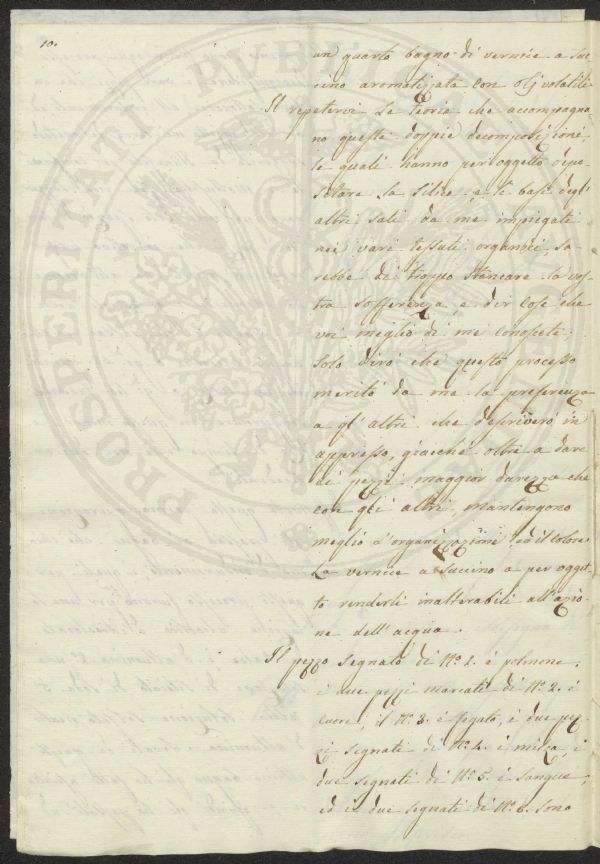 10.
un quarto bagno di vernice a suc
cino aromatizzata con olj volatili.
Il ripetervi la teoria che accompagna
no queste doppie decomposizioni,
le quali hanno per oggetto depo
sitare la silice, e le basi degl'
altri sali da me impiegati
nei vari tessuti organici, sa-
rebbe di troppo stancare la vos
tra sofferenza, e dir cose che
voi meglio di me conoscete;
solo dirò che questo processo
meritò da me la preferenza
a gl'altri che descriverò in
appresso, giacchè oltre a dare
ai pezzi maggior durezza che
con gli altri, mantengono
meglio l'organizzazione ed il colore
La vernice a succino a per ogget
to renderli inalterabili all'azio
ne dell'acqua.
Il pezzo segnato di No. 1. è polmone,
i due pezzi marcati di No. 2. è
cuore, il No. 3. è fegato, i due pez
zi segnati di No. 4. è milza, i
due segnati di No. 5. è sangue,
ed i due segnati di No. 6. sono
PROSPERITATI PUBLICAE